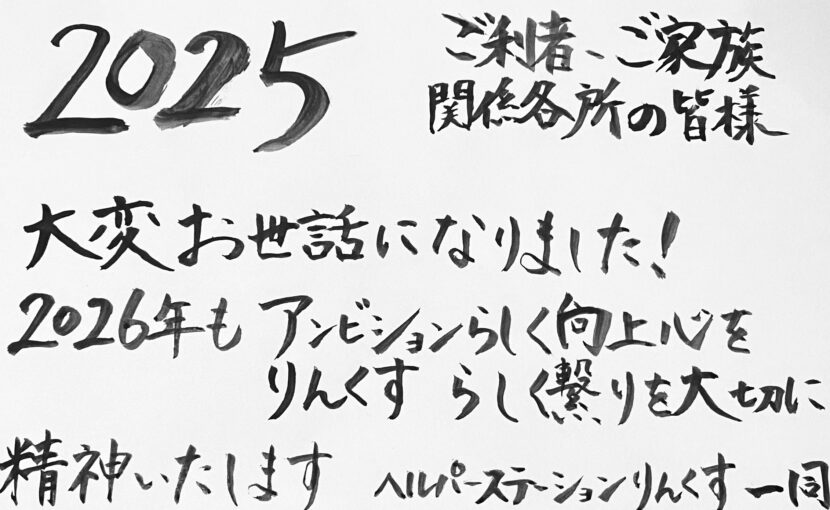 2025
ご利者、ご家族
関係各所の皆様
大変お世話になりました!
2026年も アンビションらしく向上心を
りんくす らしく繋りを大切に
精神いたします
ヘルパーステーションりんくす一同